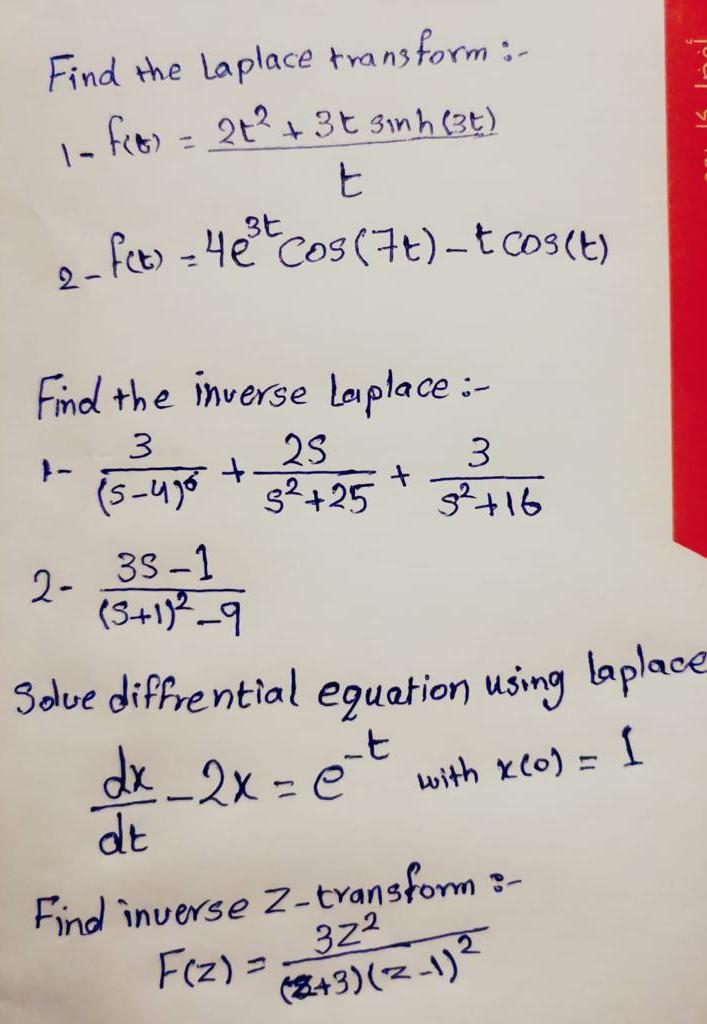 Find the Laplace transform :-
1- f(t) = (2t² + 3t sinh(3t)) / t
2- f(t) = 4e^{3t} cos(7t) - t cos(t)
Find the inverse Laplace :-
1- 3/(s-4)⁶ + 2s/(s²+25) + 3/(s²+16)
2- (3s-1)/((s+1)²-9)
Solve diffrential equation using laplace
dx/dt - 2x = e^{-t} with x(0) = 1
Find inverse Z-transform :-
F(z) = 3z²/((z+3)(z-1)²)